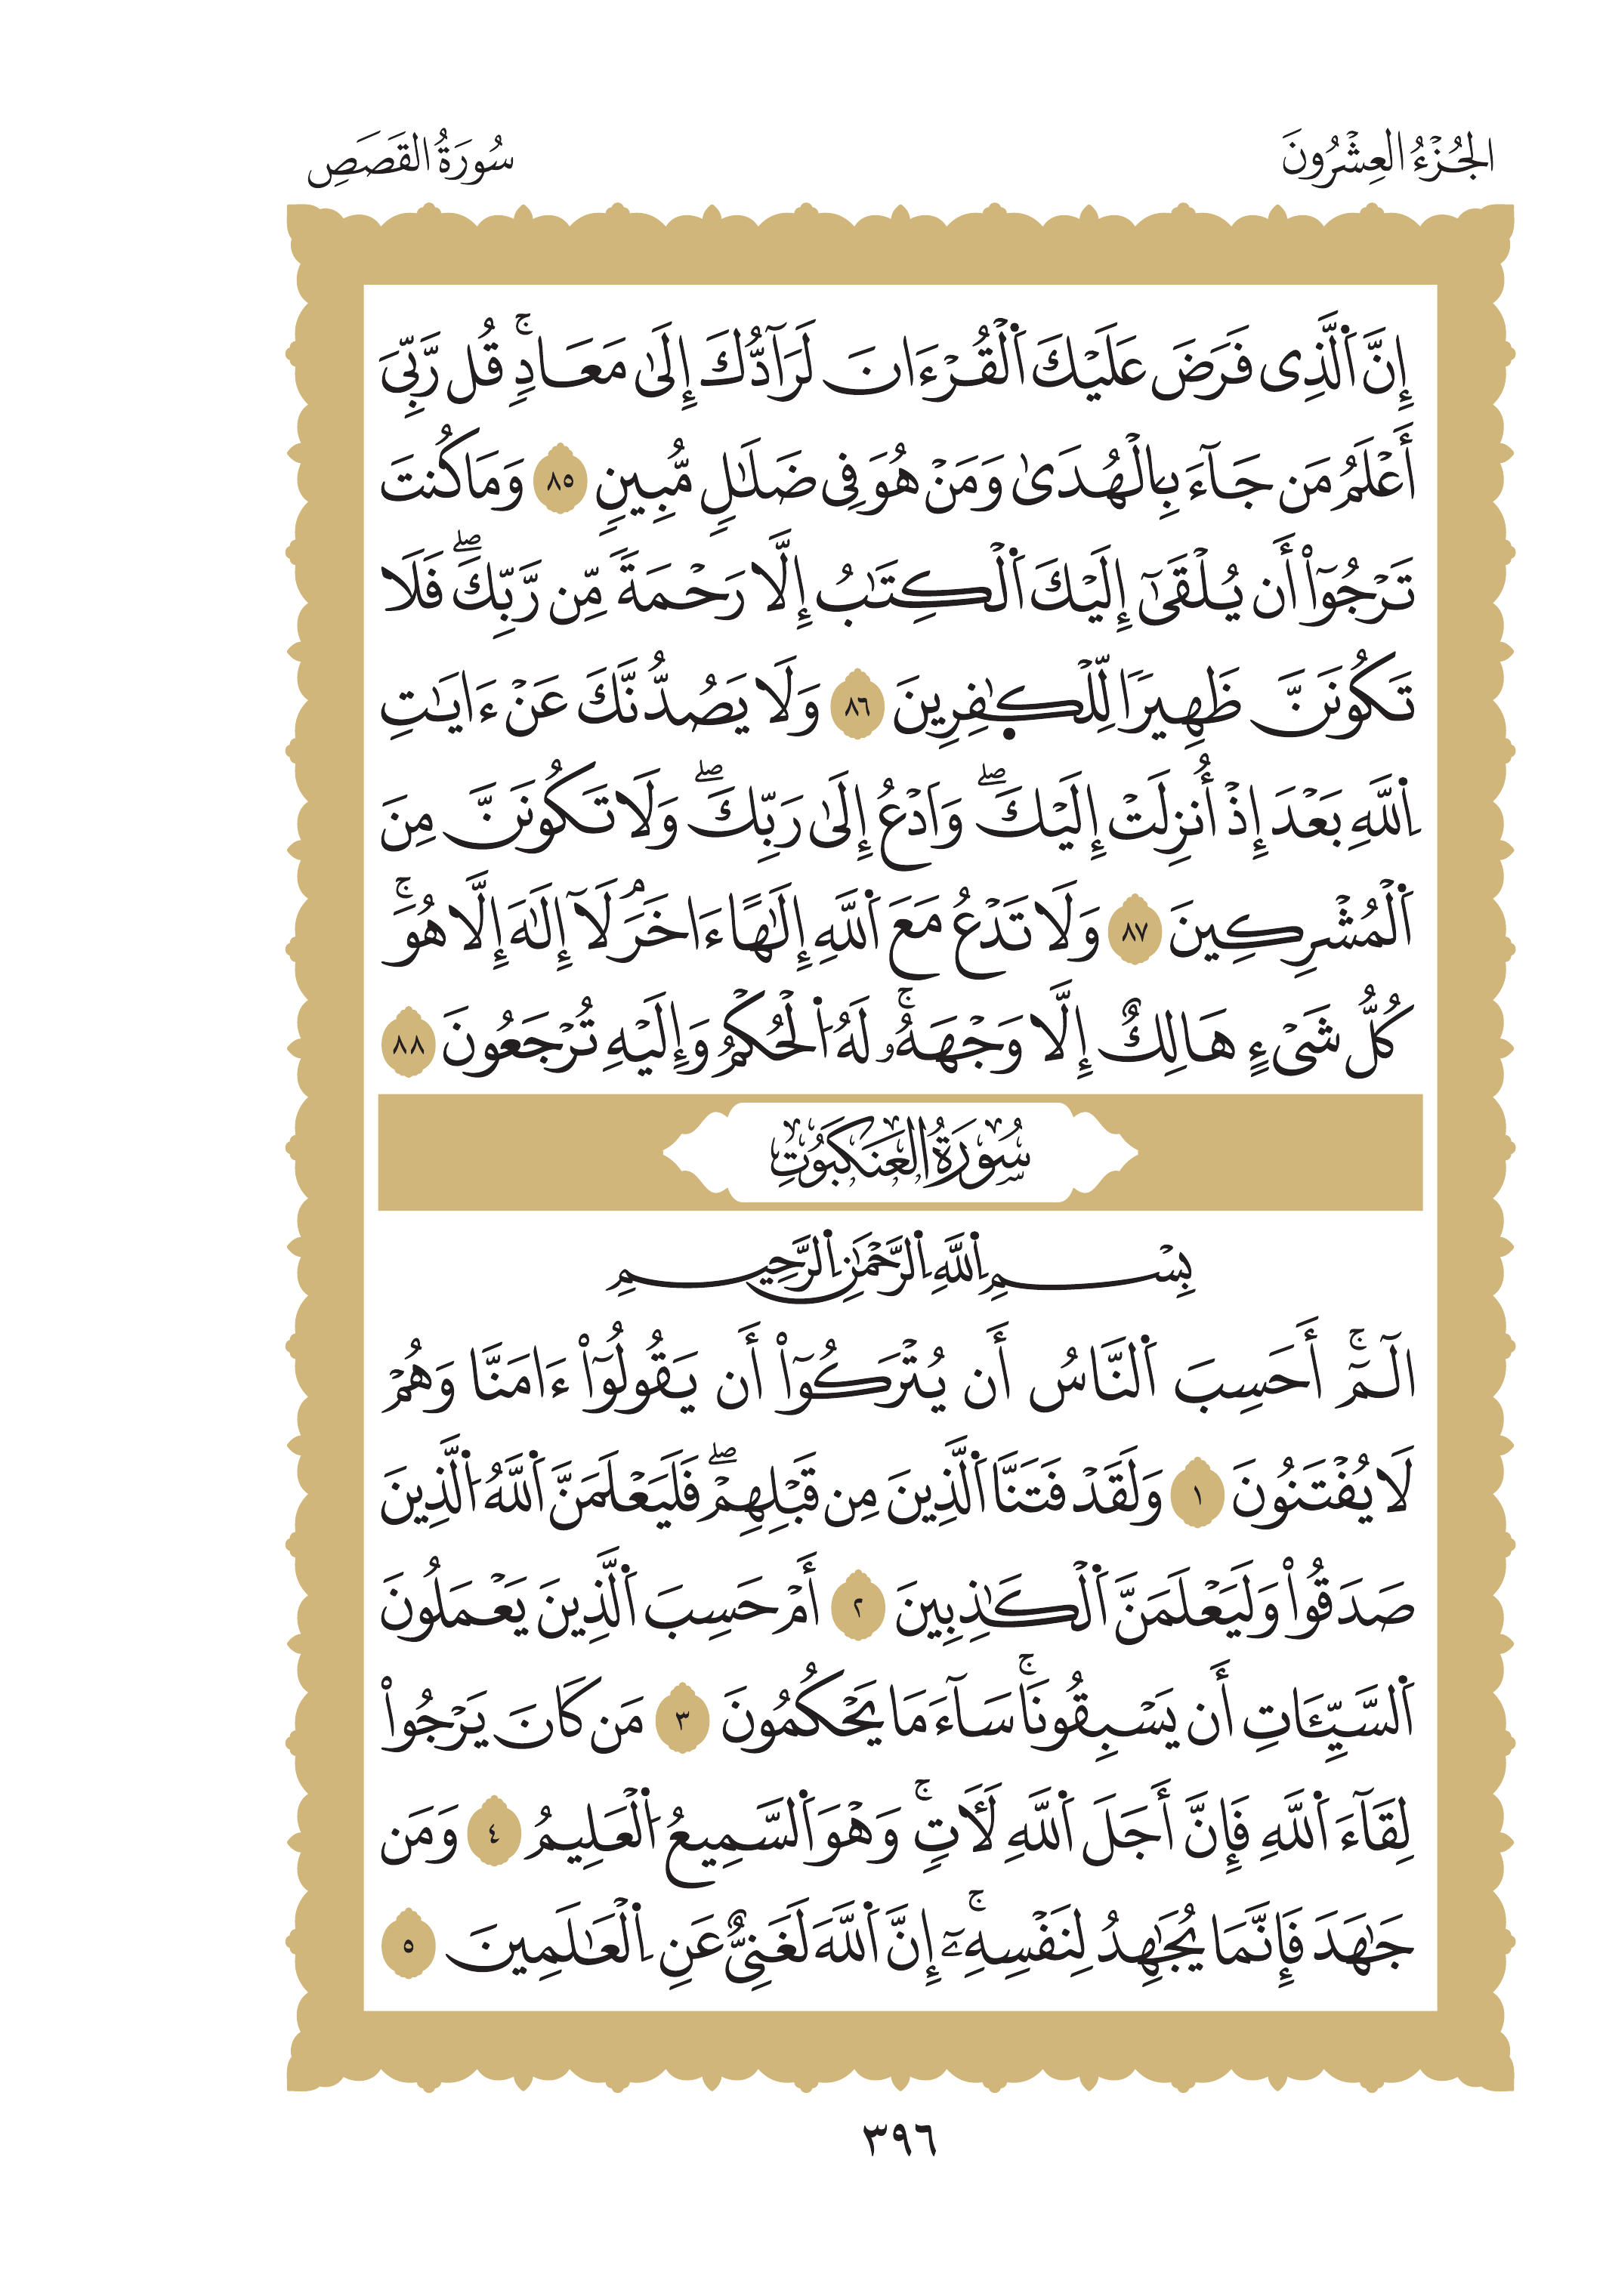 الجُزْءُ العِشْرُونَ
سُورَةُ القَصَصِ
إِنَّ ٱلَّذِى فَرَضَ عَلَيْكَ ٱلْقُرْءَانَ لَرَآدُّكَ إِلَىٰ مَعَادٍۚ قُل رَّبِّىَ
أَعْلَمُ مَن جَآءَ بِالْهُدَىٰ وَمَنْ هُوَ فِى ضَلَٰلٍ مُّبِينٍ ٨٥ وَمَا كُنتَ
تَرْجُوٓا۟ أَن يُلْقَىٰٓ إِلَيْكَ ٱلْكِتَٰبُ إِلَّا رَحْمَةً مِّن رَّبِّكَۖ فَلَا
تَكُونَنَّ ظَهِيرًا لِّلْكٰ۪فِرِينَ ٨٦ وَلَا يَصُدُّنَّكَ عَنْ ءَايَٰتِ
اِ۬للَّهِ بَعْدَ إِذْ أُنزِلَتْ إِلَيْكَۖ وَادْعُ إِلَىٰ رَبِّكَۖ وَلَا تَكُونَنَّ مِنَ
ٱلْمُشْرِكِينَ ٨٧ وَلَا تَدْعُ مَعَ ٱللَّهِ إِلَٰهًا ءَاخَرَۘ لَآ إِلَٰهَ إِلَّا هُوَۚ
كُلُّ شَىْءٍ هَالِكٌ إِلَّا وَجْهَهُۥۚ لَهُ اُ۬لْحُكْمُ وَإِلَيْهِ تُرْجَعُونَ ٨٨
سُورَةُ العَنكَبُوتِ
بِسْمِ اِ۬للَّهِ اِ۬لرَّحْمَٰنِ اِ۬لرَّحِيمِ
الٓمٓۚ أَحَسِبَ ٱلنَّاسُ أَن يُتْرَكُوٓا۟ أَن يَقُولُوٓا۟ ءَامَنَّا وَهُمْ
لَا يُفْتَنُونَ ١ وَلَقَدْ فَتَنَّا ٱلَّذِينَ مِن قَبْلِهِمْۖ فَلَيَعْلَمَنَّ ٱللَّهُ اُ۬لَّذِينَ
صَدَقُوا۟ وَلَيَعْلَمَنَّ ٱلْكَٰذِبِينَ ٢ أَمْ حَسِبَ ٱلَّذِينَ يَعْمَلُونَ
ٱلسَّيِّـَٔاتِ أَن يَسْبِقُونَاۚ سَآءَ مَا يَحْكُمُونَ ٣ مَن كَانَ يَرْجُوا۟
لِقَآءَ ٱللَّهِ فَإِنَّ أَجَلَ ٱللَّهِ لَأٓتٍۚ وَهْوَ ٱلسَّمِيعُ اُ۬لْعَلِيمُ ٤ وَمَن
جَٰهَدَ فَإِنَّمَا يُجَٰهِدُ لِنَفْسِهِۦٓۚ إِنَّ ٱللَّهَ لَغَنِىٌّ عَنِ اِ۬لْعَٰلَمِينَ ٥
٣٩٦